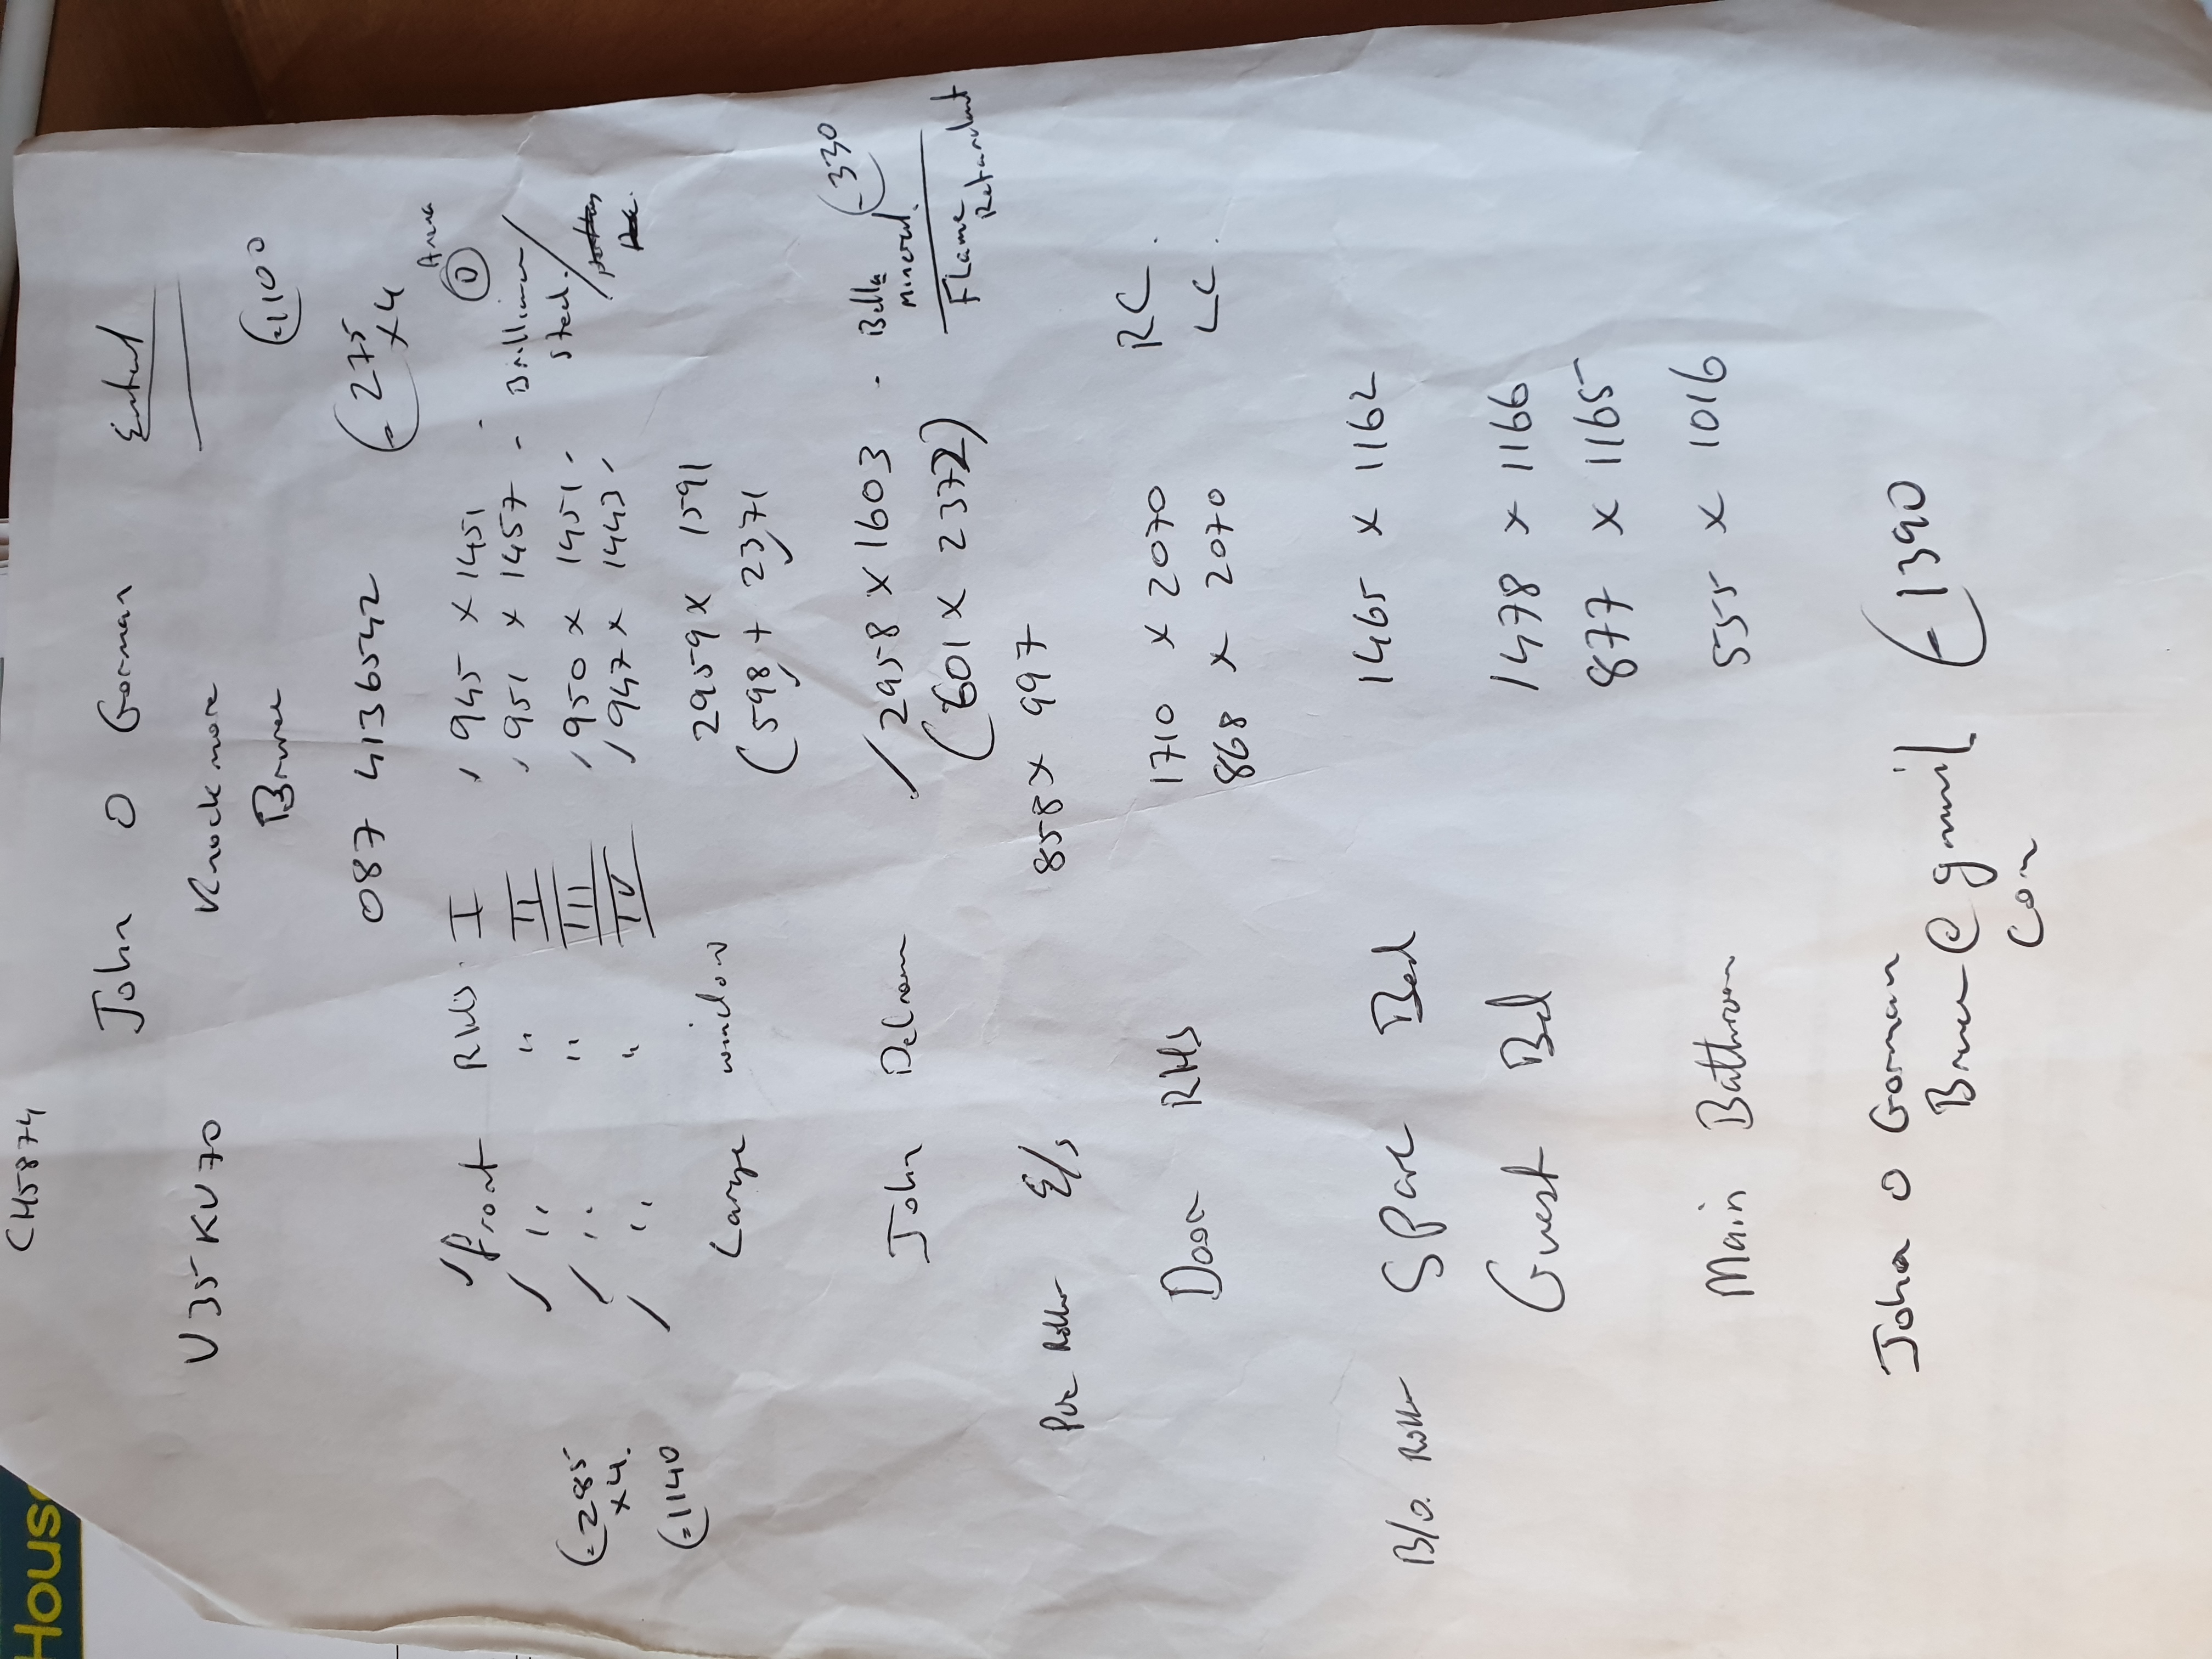 CH5874
John O Gorman Entered
V35 KV70 Knockmore
Bruree (-1100
087 4136542 (-275
x4
Front RHS I 945 x 1451
" " II 951 x 1457 - Brilliance
" " III 950 x 1451 Steel.
" " IV 947 x 1443
(-285
x4.
(-1140
Large window 2959 x 1591
(598 + 2371
John Delram 2958 x 1603 - Bella (-330
Mineral.
(601 x 2372) Flame
Retardant
Pvc Roller E/s 858 x 997
Door RHS 1710 x 2070 RC.
868 x 2070 LC.
B/o Roller Spare Bed 1465 x 1162
Guest Bed 1478 x 1166
877 x 1165
Main Bathroom 555 x 1016
John O Gorman
Bruree@gmail (-1390
Com
Hous